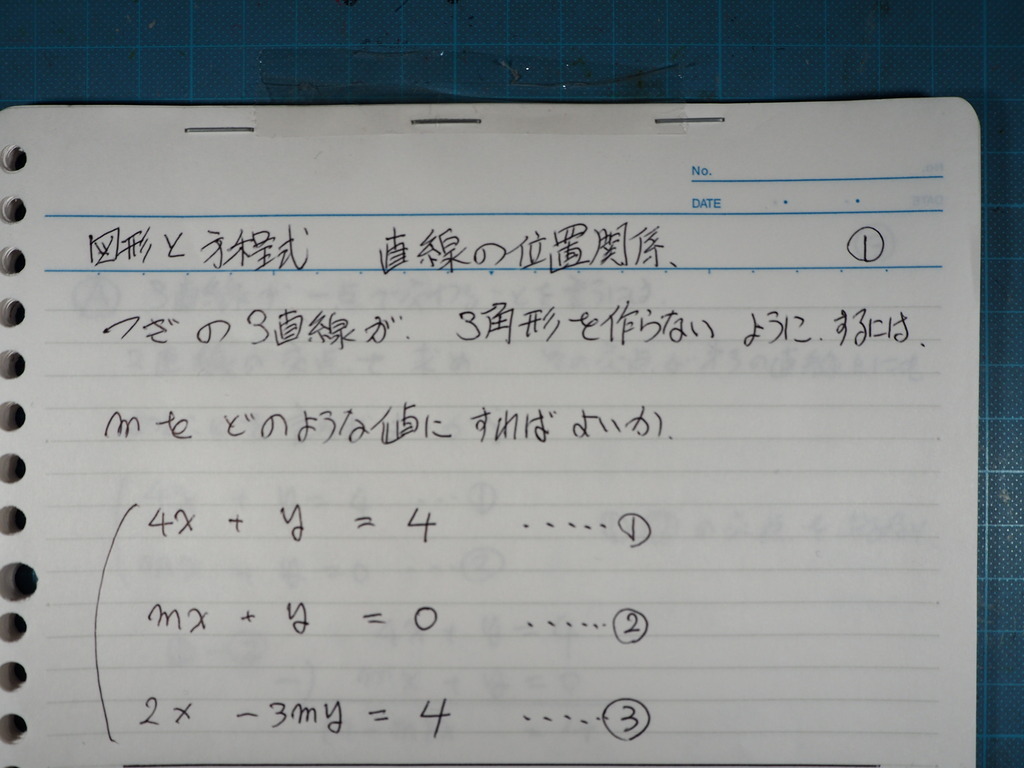 No.
DATE
図形と方程式 直線の位置関係、 ①
つぎの3直線が、3角形を作らないようにするには、
mをどのような値にすればよいか、
4x + y = 4 ‥‥‥①
mx + y = 0 ‥‥‥②
2x - 3my = 4 ‥‥‥③